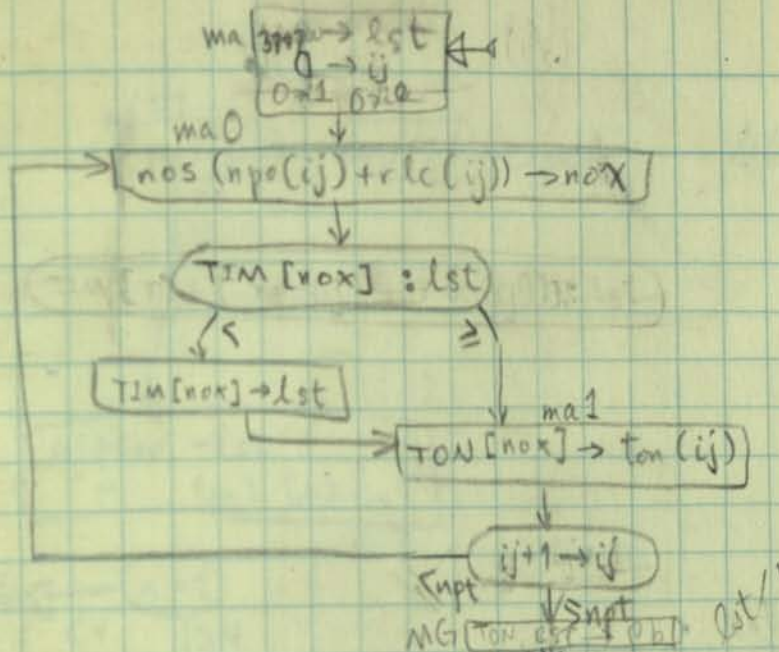 ma → lst
0 → ij
ma0
nos (npo(ij) + rlc(ij)) → nox
TIM [nox] : lst
< ≥
TIM [nox] → lst
ma1
TON [nox] → ton (ij)
ij+1 → ij
<npt
npt
MG TON lst/